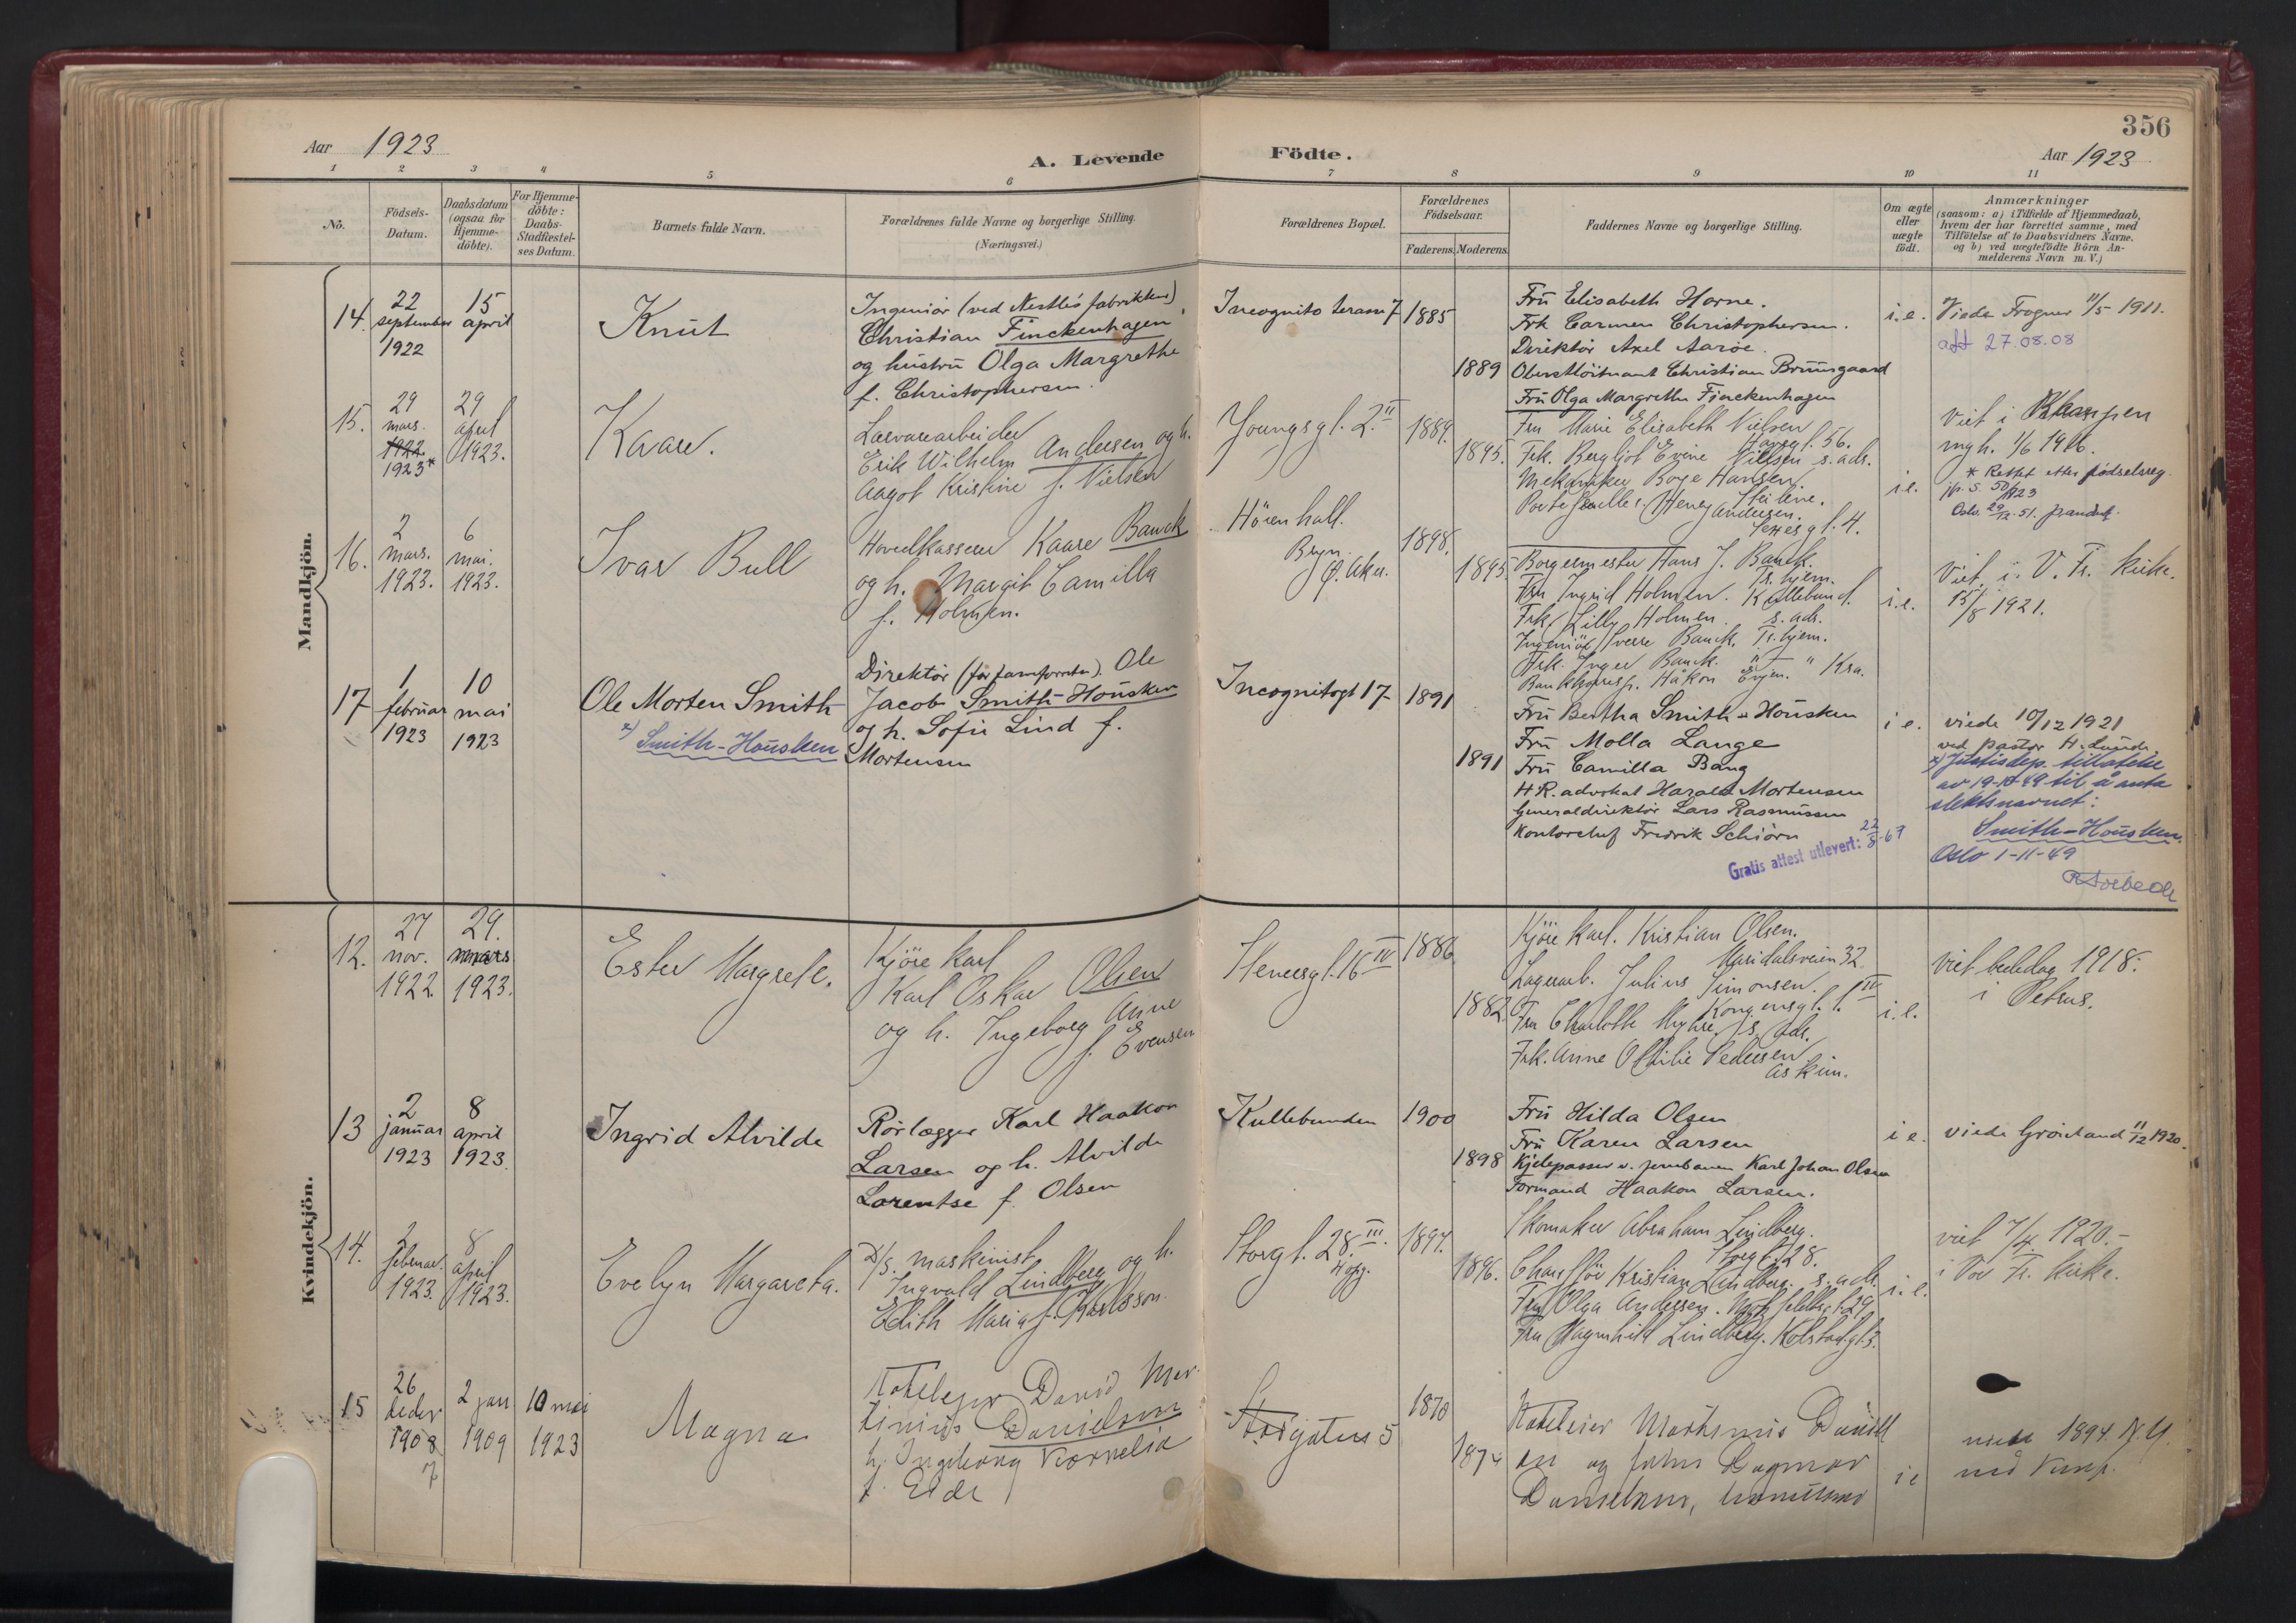 356
Aar 1923
A. Levende Födte.
Aar 1923
1 2 3 4 5 6 7 8 9 10 11
No.
Födsels-
Datum.
Daabsdatum
(ogsaa for
Hjemme-
döbte).
For Hjemme-
döbte:
Daabs-
Stadfæstel-
ses Datum.
Barnets fulde Navn.
Forældrenes fulde Navne og borgerlige Stilling.
(Næringsvei.)
Forældrenes Bopæl.
Forældrenes
Födselsaar.
Faderens. Moderens.
Faddernes Navne og borgerlige Stilling.
Om ægte
eller
uægte
födt.
Anmærkninger
(saasom: a) i Tilfælde af Hjemmedaab,
hvem der har forrettet samme, med
Tilföielse af to Daabsvidners Navne.
og b) ved uægtefödte Börn An-
melderens Navn m. V.)
Mandkjön.
14.
22
september
1922
15
april
Knut
Ingeniør (ved Nestlés fabrikker)
Christian Finckenhagen
og hustru Olga Margrethe
f. Christophersen.
Incognito terasse 7
1885
1889
Fru Elisabeth Horne.
Frk Carmen Christophersen.
Direktør Axel Aarøe.
Oberstløitnant Christian Bruusgaard
Fru Olga Margrethe Finckenhagen
i.e.
Viede Frogner 11/5 1911.
att 27.08.08
15.
29
mars.
1922.
1923*
29
april
1923.
Kaare.
Lærvarearbeider
Erik Wilhelm Andersen og h.
Aagot Kristine f. Nielsen
Youngsgt. 2. II
1889.
1895.
Fru Marie Elisabeth Nielsen
Havsgt. 56.
Frk. Bergljot Evine Nielsen s. ads.
Mekaniker Borge Hansen.
Steilene.
Porteføuller. Henry Andersen.
gt. 4.
i.e.
Viet i Kampen
mgh. 1/6 1916.
* Rettet etter fødselsreg.
jfr. S. 50/1923
Oslo 29/12. 51.
16.
2
mars.
1923.
6
mai.
1923.
Ivar Bull
Hovedkasserer Kaare Banck
og h. Margit Camilla
f. Holmsen.
Hören hall.
Bryn.
Ø. Aker.
1898.
1895.
Borgermester Hans J. Banck.
Tr.hjem.
Fru Ingrid Holmen. Kullebund.
Frk. Lilly Holmen. s. ads.
Ingeniör Sverre Banck, Tr.hjem.
Frk. Inger Banck. " "
Bankkorresp. Håkon Evjen. Kra.
i.e.
Viet i V. Fr. kirke.
15/8 1921.
17
1
februar
1923
10
mai
1923
Ole Morten Smith
x) Smith-Housken
Direktør (for ) Ole
Jacob Smith-Housken
og h. Sofie Lind f.
Mortensen
Incognitogt 17
1891
1891
Fru Bertha Smith-Housken
Fru Molla Lange
Fru Camilla Bang
H.R. advokat Harald Mortensen
Generaldirektør Lars Rasmussen
Kontorchef Fredrik Schiørn
Gratis attest utlevert: 22/8-67
i e.
viede 10/12 1921
ved pastor H. Lunde.
x) Justisdep. tillatelse
av 19-10-49 til å anta
slektsnavnet:
Smith-Housken.
Oslo 1-11-49
Kvindekjön.
12.
27
nov.
1922.
29.
mars
1923.
Ester Margrete.
Kjörekarl
Karl Oskar Olsen
og h. Ingeborg Anne
f. Evensen
Stenersgt. 16 IV
1886.
1882.
Kjörekarl. Kristian Olsen.
Maridalsveien 32
Lagerarb. Julius Simonsen.
Kongensgt. 1. IV
Fru Charlotte Myhre. s. ads.
Frk. Anne Ottilie Pedersen
Askim.
i.e.
viet bededag 1918.
i Petrus.
13
2
januar
1923
8
april
1923.
Ingrid Alvilde
Rørlægger Karl Haakon
Larsen og h. Alvilde
Lorentse f. Olsen
Kullebunden
1900
1898
Fru Hilda Olsen
Fru Karen Larsen
Kjelepasser v. jernbanen Karl Johan Olsen
Formand Haakon Larsen.
i e.
viede Grönland 11/12 1920.
14.
2
februar.
1923.
8
april
1923.
Evelyn Margareta.
D/S. maskinist
Ingvald Lindberg og h.
Edith Maria f. Karlsson.
Storgt. 28. III.
1897.
1896.
Skomaker Abraham Lindberg.
Storgt. 28.
Chauffør Kristian Lindberg. s. ads.
Fru Olga Andersen. gt. 29
Fru Ragnhild Lindberg. Kolstadgt. 3.
i.e.
viet 7/4 1920.-
i Vor Fr. kirke.
15
26
1908
7
2 jan
1909
10 mai
1923
Magna
Hoteleier David Mar-
tinius Danielsen
h. Ingeborg Kornelia
f. Eide
Storgaten 5
1870
1874
Hoteleier Martinius Daniel
sen og frøken Dagmar
Danielsen,
i e
1894.